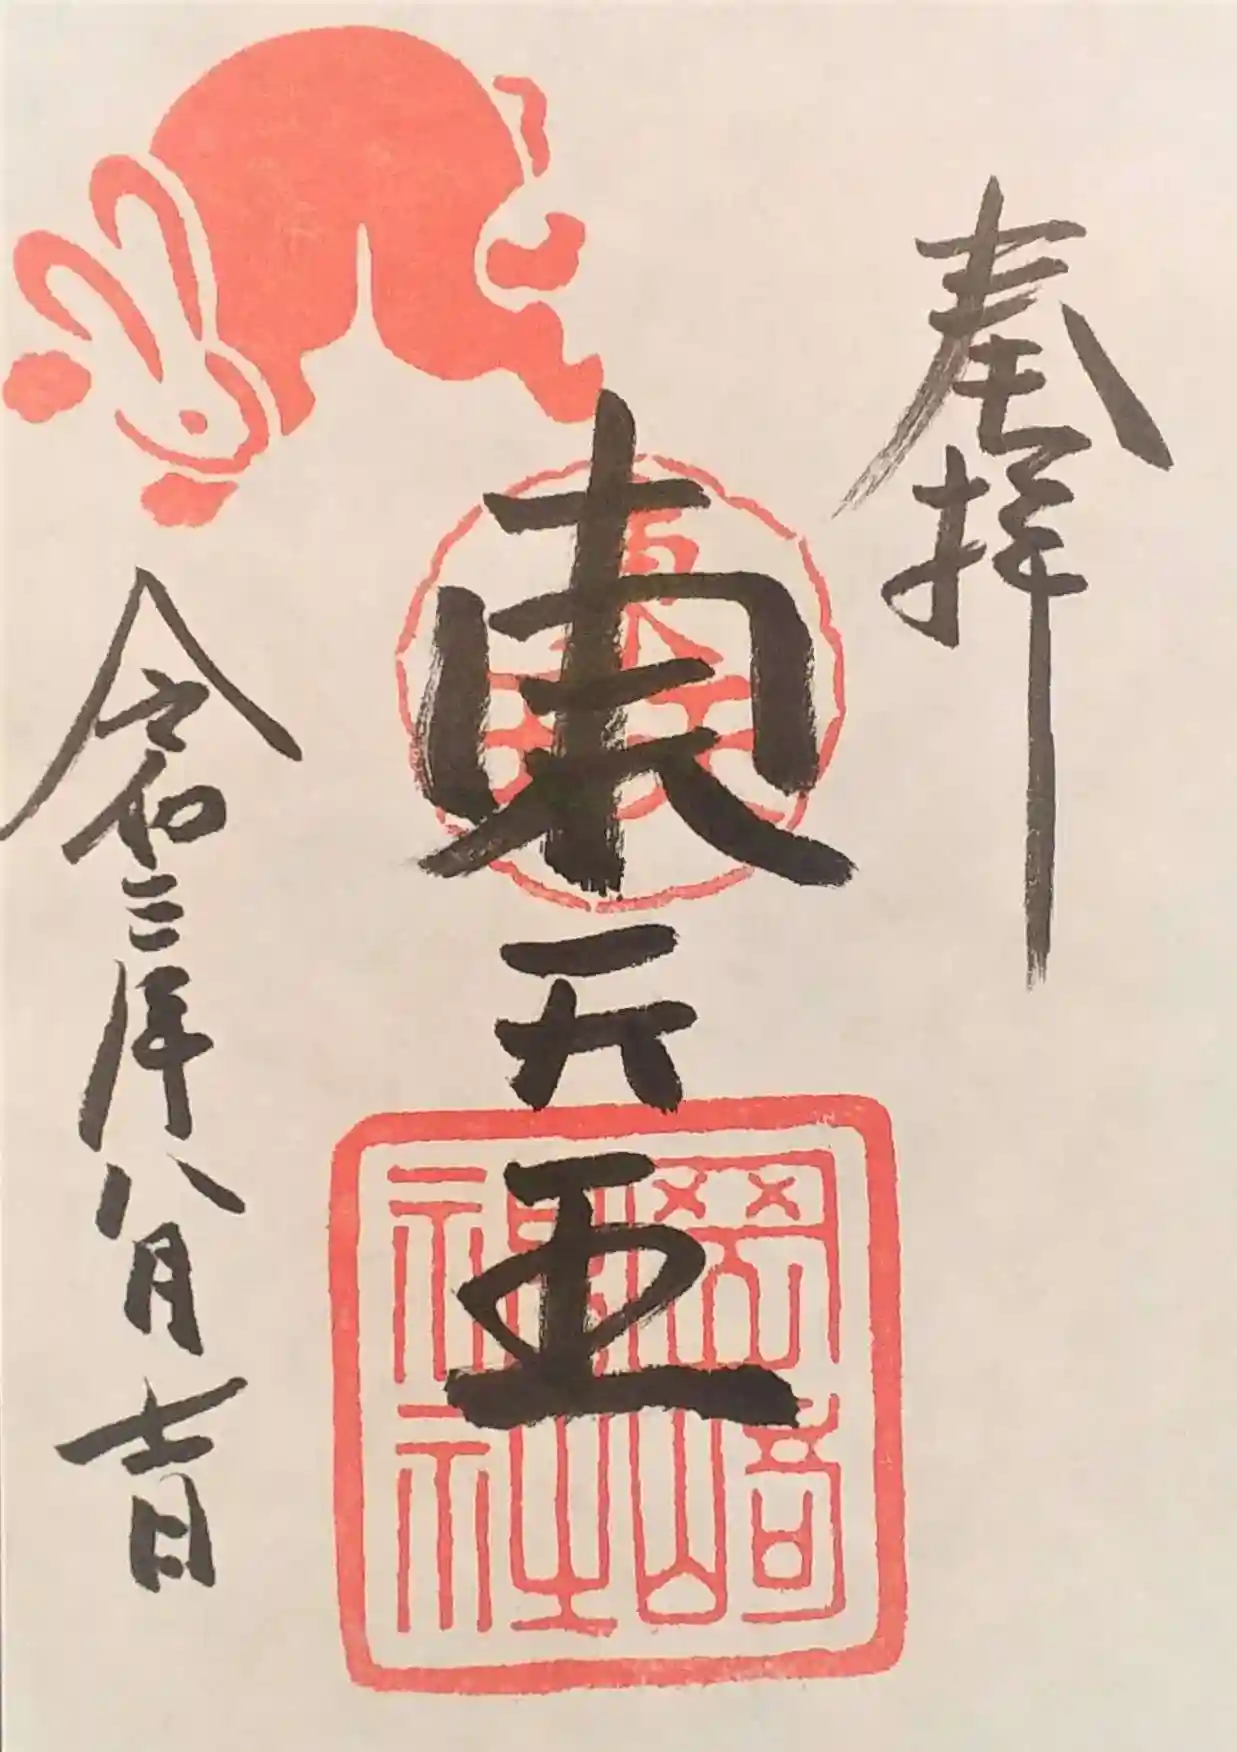 奉拝
東天王
岡崎
神社
令和三年八月十一日